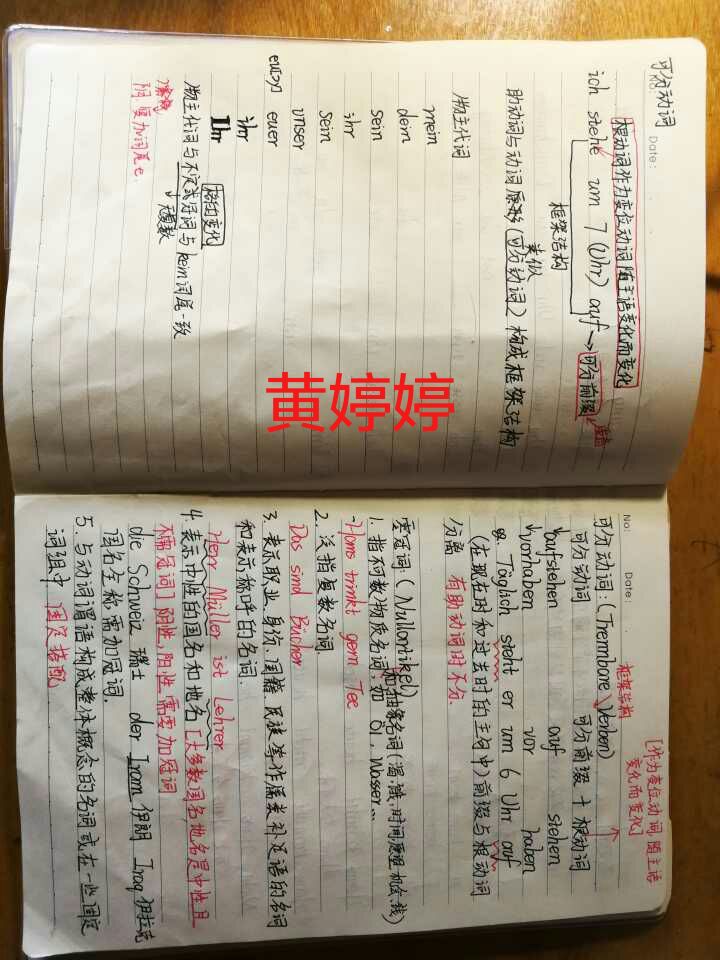 可分动词
Date:
根动词作为变位动词随主语变化而变化
ich stehe um 7 (Uhr) auf → 可分前缀
框架结构
类似
助动词与动词原形(可分动词)构成框架结构
物主代词
mein
dein
sein
ihr
sein
unser
euer
ihr
Ihr
格的变化
物主代词与不定式冠词与kein词尾一致
无复数
阴.复加词尾e.
黄婷婷
No:
Date:
[作为变位动词,随主语
变化而变化]
框架结构
可分动词:(Trennbare Verben)
可分动词 可分前缀 + 根动词
aufstehen auf stehen
vorhaben vor haben
eg. Täglich steht er um 6 Uhr auf
(在现在时和过去时的主句中)前缀与根动词
分离 有助动词时不分
零冠词:(Nullartikel)
1. 指称物质名词,如 Öl, Wasser...
-Hans trinkt gern Tee
2. 泛指复数名词.
Das sind Bücher
3. 表示职业,身份,国籍,民族等作属类补足语的名词
和表示称呼的名词.
Herr Müller ist Lehrer
4. 表示中性的国名和地名[大多数国名地名是中性且
不需冠词]阴性,阳性,需要加冠词
die Schweiz 瑞士 der Iran 伊朗 Iraq 伊拉克
国名全称需加冠词.
5. 与动词谓语构成整体概念的名词或在一些固定
词组中 固定搭配